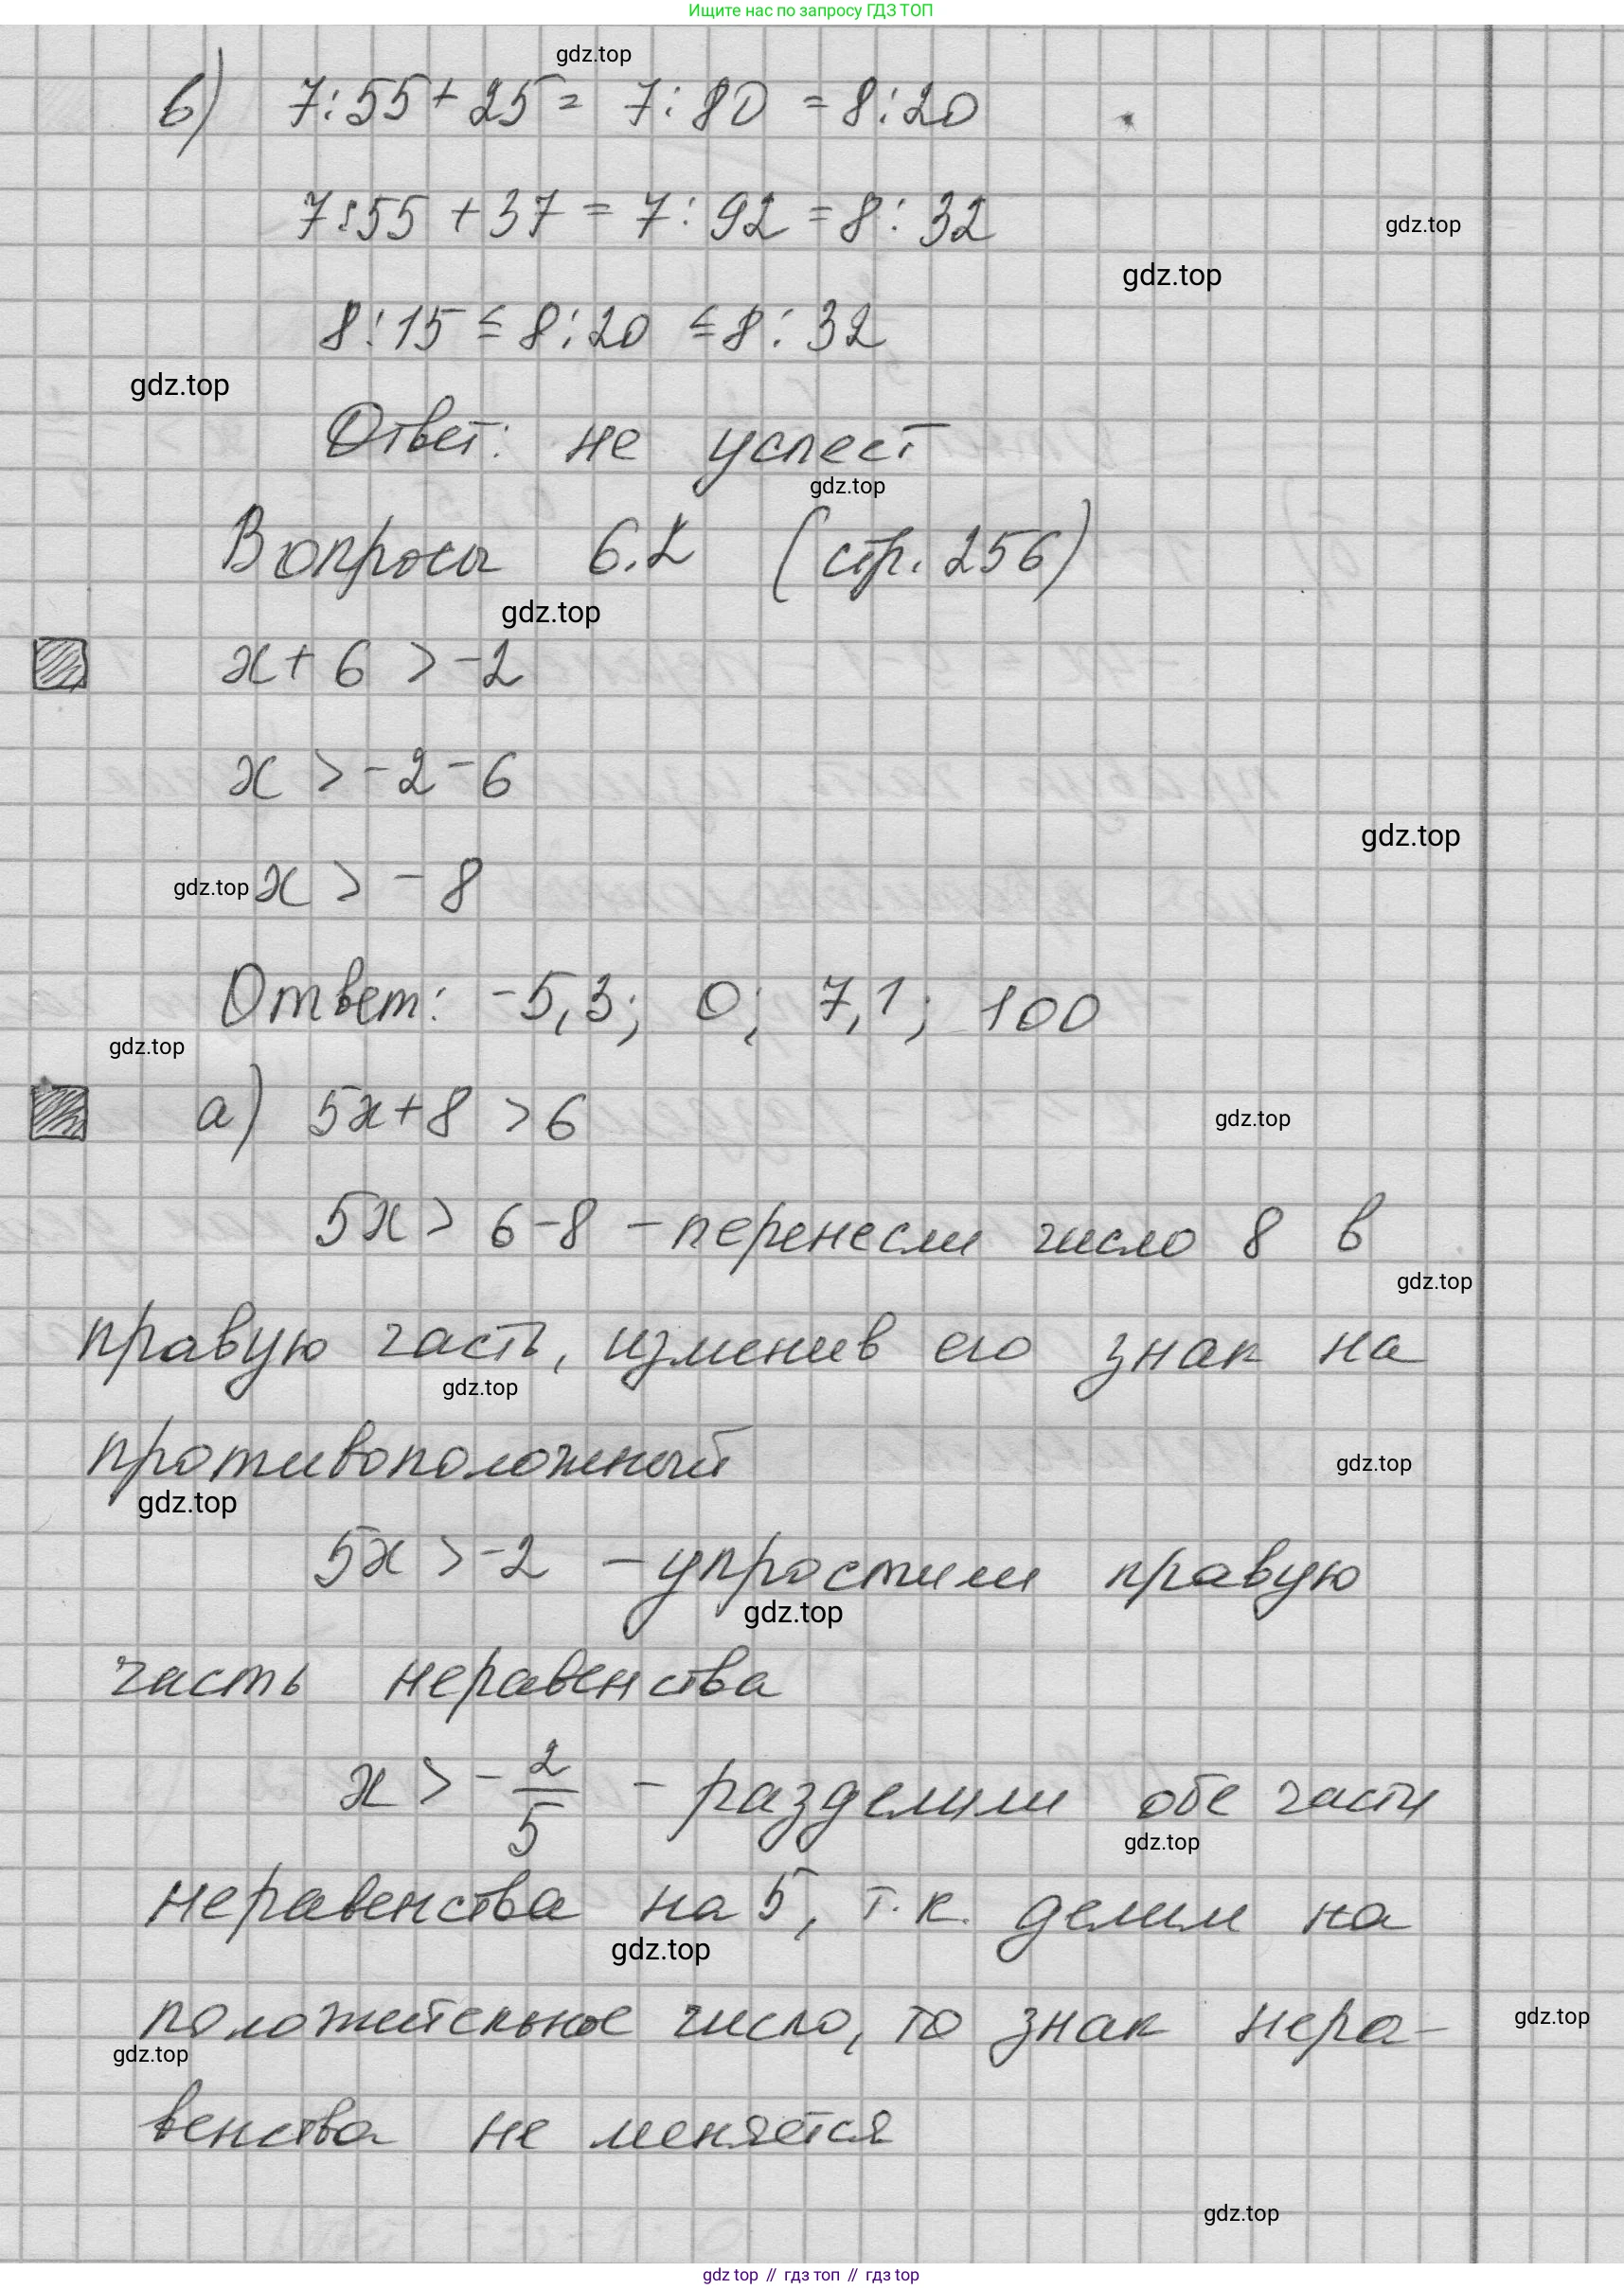 Ищите нас по запросу ГДЗ ТОП
gdz.top
в) 7:55+25= 7:80 =8:20
7:55 +37 = 7:92 =8:32
gdz.top
gdz.top
8:15 ≤ 8:20 ≤8:32
gdz.top
Ответ: не успеет
gdz.top
Вопросы 6.2 (стр. 256)
gdz.top
x+6 >-2
x >-2-6
gdz.top
gdz.top x > -8
Ответ: -5,3; 0; 7,1; 100
gdz.top
а) 5x+8 >6
gdz.top
5x> 6-8 -перенесли число 8 в
gdz.top
правую часть, изменив его знак на
gdz.top
противоположный
gdz.top
gdz.top
5x >-2 -упростили правую
gdz.top
часть неравенства
x >-2/5 - разделили обе части
gdz.top
неравенства на 5, т.к. делим на
gdz.top
положительное число, то знак нера-
gdz.top
gdz.top
венства не меняется
gdz.top
gdz top // гдз топ // гдз top